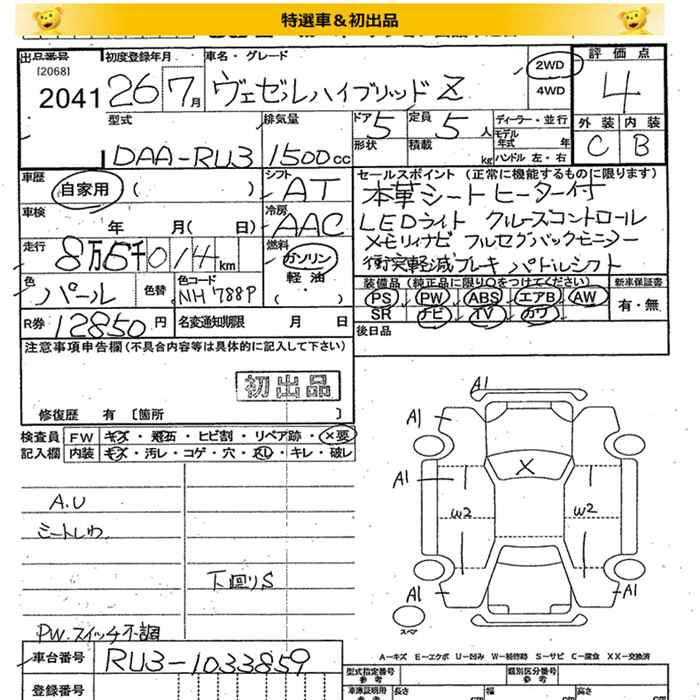 特選車＆初出品
出品番号 初度登録年月 車名・グレード
[2068]
2041 26 7月 ヴェゼルハイブリッドZ 2WD 4WD 評価点 4
外装 内装
C B
型式 排気量 ドア 5 定員 5人 ディーラー・並行
形状 積載 kg モデル年式 年
ハンドル 左・右
DAA-RU3 1500cc
車歴 シフト セールスポイント (正常に機能するものに限ります)
自家用 ( ) AT 本革シートヒーター付
車検 冷房 LEDライト クルーズコントロール
年 月( 日) AAC メモリィナビ フルセグバックモニター
走行 燃料 衝突軽減ブレーキ パドルシフト
8万5千014km ガソリン
軽油
( )
色 色替 色コード 装備品 (純正品に限り○をつけてください) 新車保証書
パール NH788P PS PW ABS エアB AW 有・無
SR ナビ TV カワ
R券 12850円 名変通知期限 月 日 後日品
注意事項申告欄 (不具合内容等は具体的に記入して下さい)
初出品
修復歴 有 [箇所 ]
検査員 FW キズ・飛石・ヒビ割・リペア跡・×要
記入欄 内装 キズ・汚レ・コゲ・穴・スレ・キレ・破レ
A.U
シートしわ
下回りS
PW.スイッチ不調
A1
A1 A1
A1 A1
X
W2 W2
A1 A1
スペア
A-キズ E-エクボ U-凹み W-補修跡 S-サビ C-腐食 XX-交換済
車台番号 RU3-1033859
型式指定番号 参考 類別区分番号 参考
登録番号 車庫証明用 参考 長さ cm 幅 cm 高さ cm